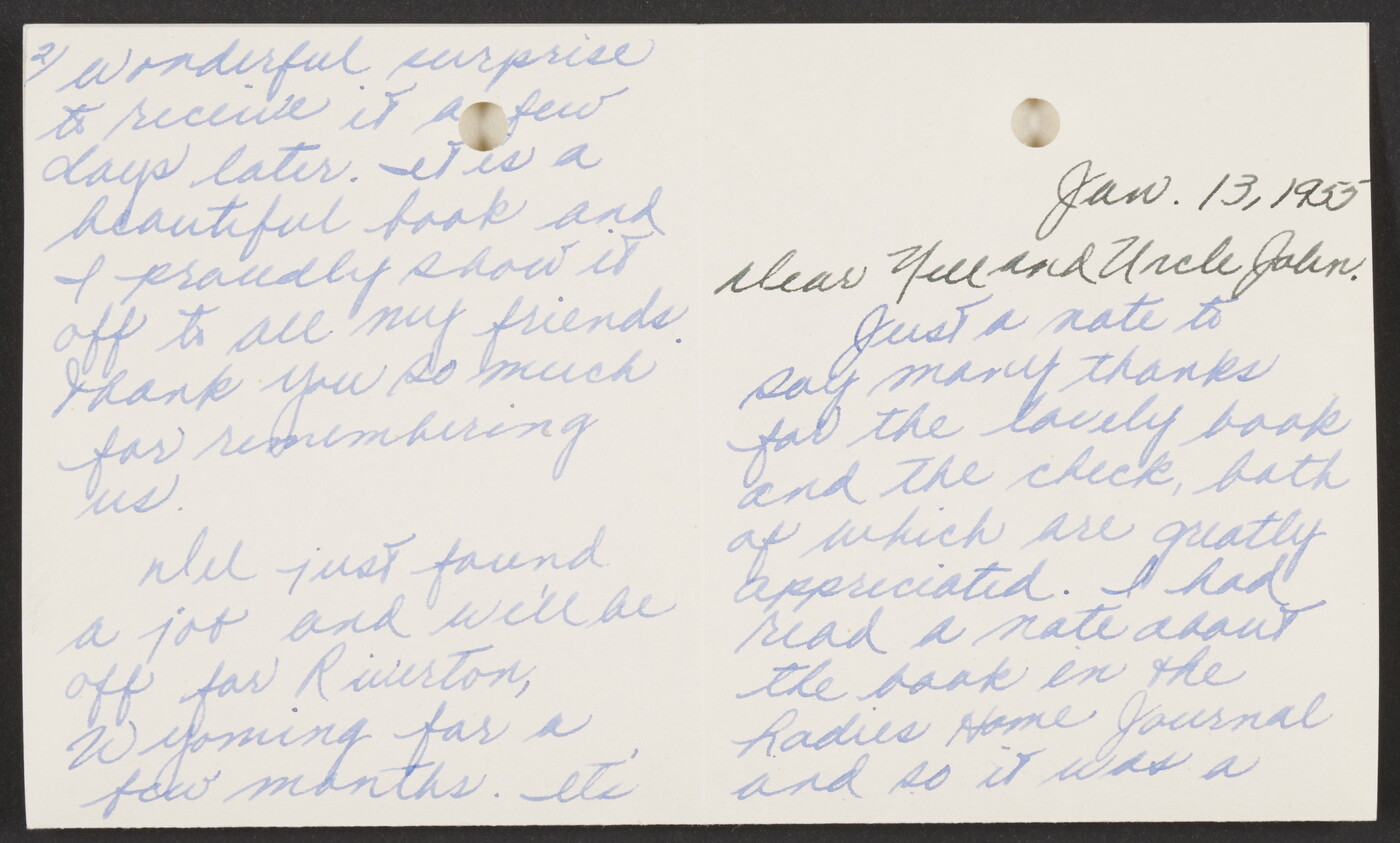 Jan. 13, 1955
Dear Nell and Uncle John.
Just a note to
say many thanks
for the lovely book
and the check, both
of which are greatly
appreciated. I had
read a note about
the book in the
Ladies Home Journal
and so it was a
2) wonderful surprise
to receive it a few
days later. It is a
beautiful book and
I proudly show it
off to all my friends.
Thank you so much
for remembering
us.
Del just found
a job and we'll be
off for Riverton,
Wyoming for a
few months. It's